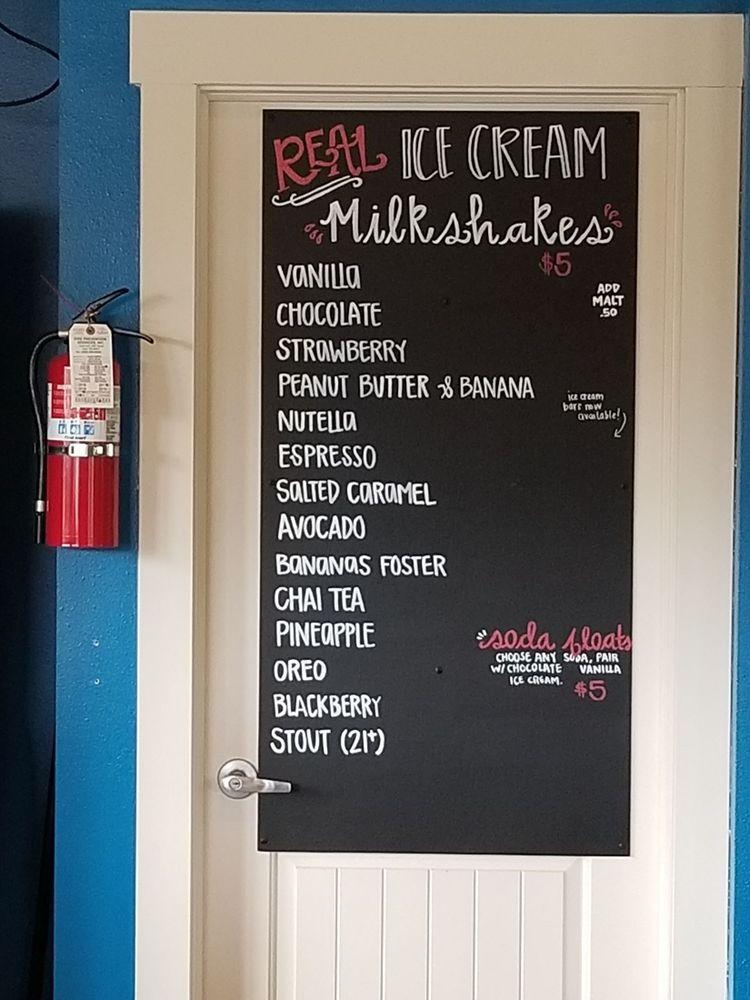 REAL ICE CREAM
Milkshakes
$5
VANILLA
ADD
MALT
.50
CHOCOLATE
STRAWBERRY
PEANUT BUTTER & BANANA
ice cream
bars now
available!
NUTELLA
ESPRESSO
SALTED CARAMEL
AVOCADO
BANANAS FOSTER
CHAI TEA
PINEAPPLE
OREO
BLACKBERRY
STOUT (21+)
soda floats
CHOOSE ANY SODA, PAIR
W/ CHOCOLATE VANILLA
ICE CREAM.
$5